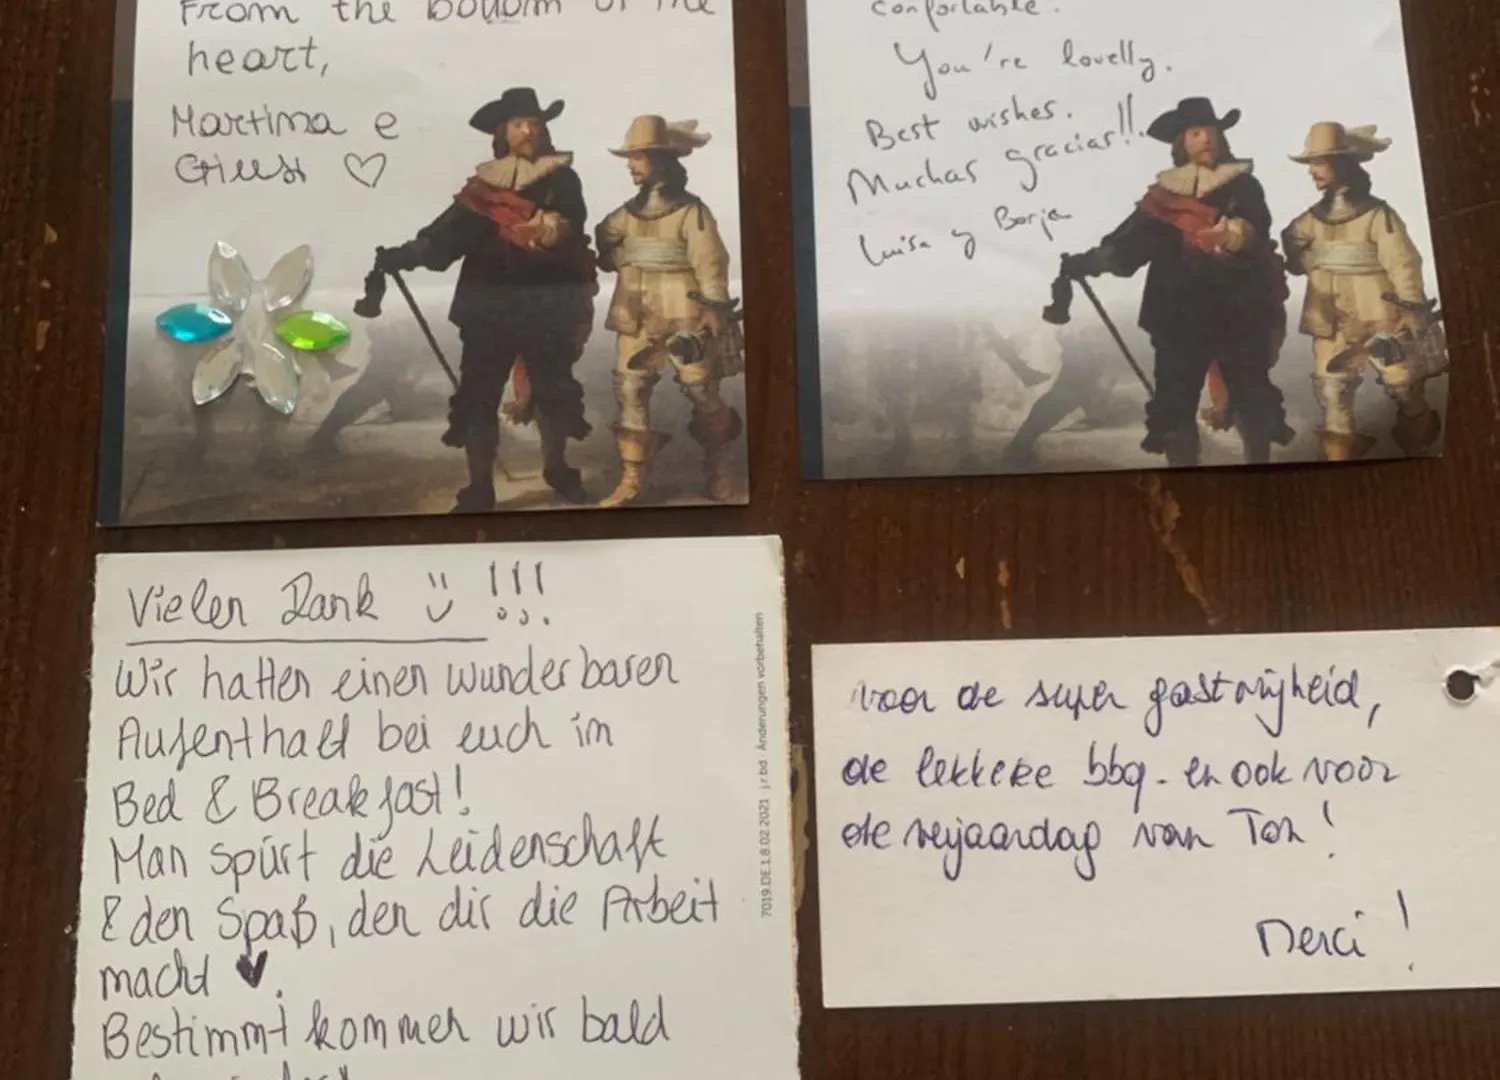 From the bottom of the
heart,
Martina e
♡
comfortable.
You're lovelly.
Best wishes.
Muchas gracias!!
Luisa y Borja
Vielen Dank !!!
Wir hatten einen wunderbaren
Aufenthalt bei euch im
Bed & Breakfast!
Man spürt die Leidenschaft
& den Spaß, den dir die Arbeit
macht ♥.
Bestimmt kommen wir bald
7019.DE.1.8.02.2021 · j.r.bd · Änderungen vorbehalten
voor de super gastvrijheid,
de lekkere bbq - en ook voor
de verjaardag van Ton!
Merci!